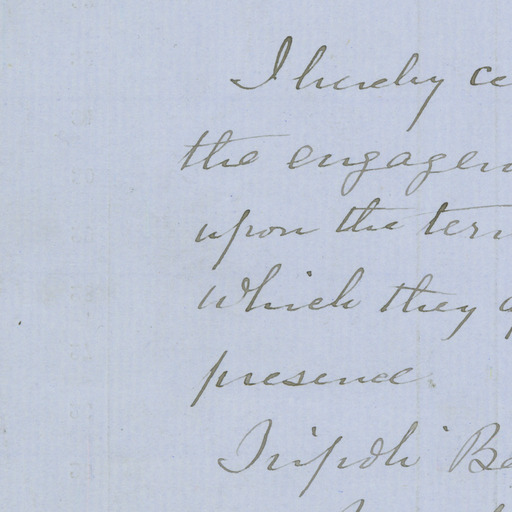 I hereby ce
the engagem
upon the term
which they a
presence
Tripoli Ba